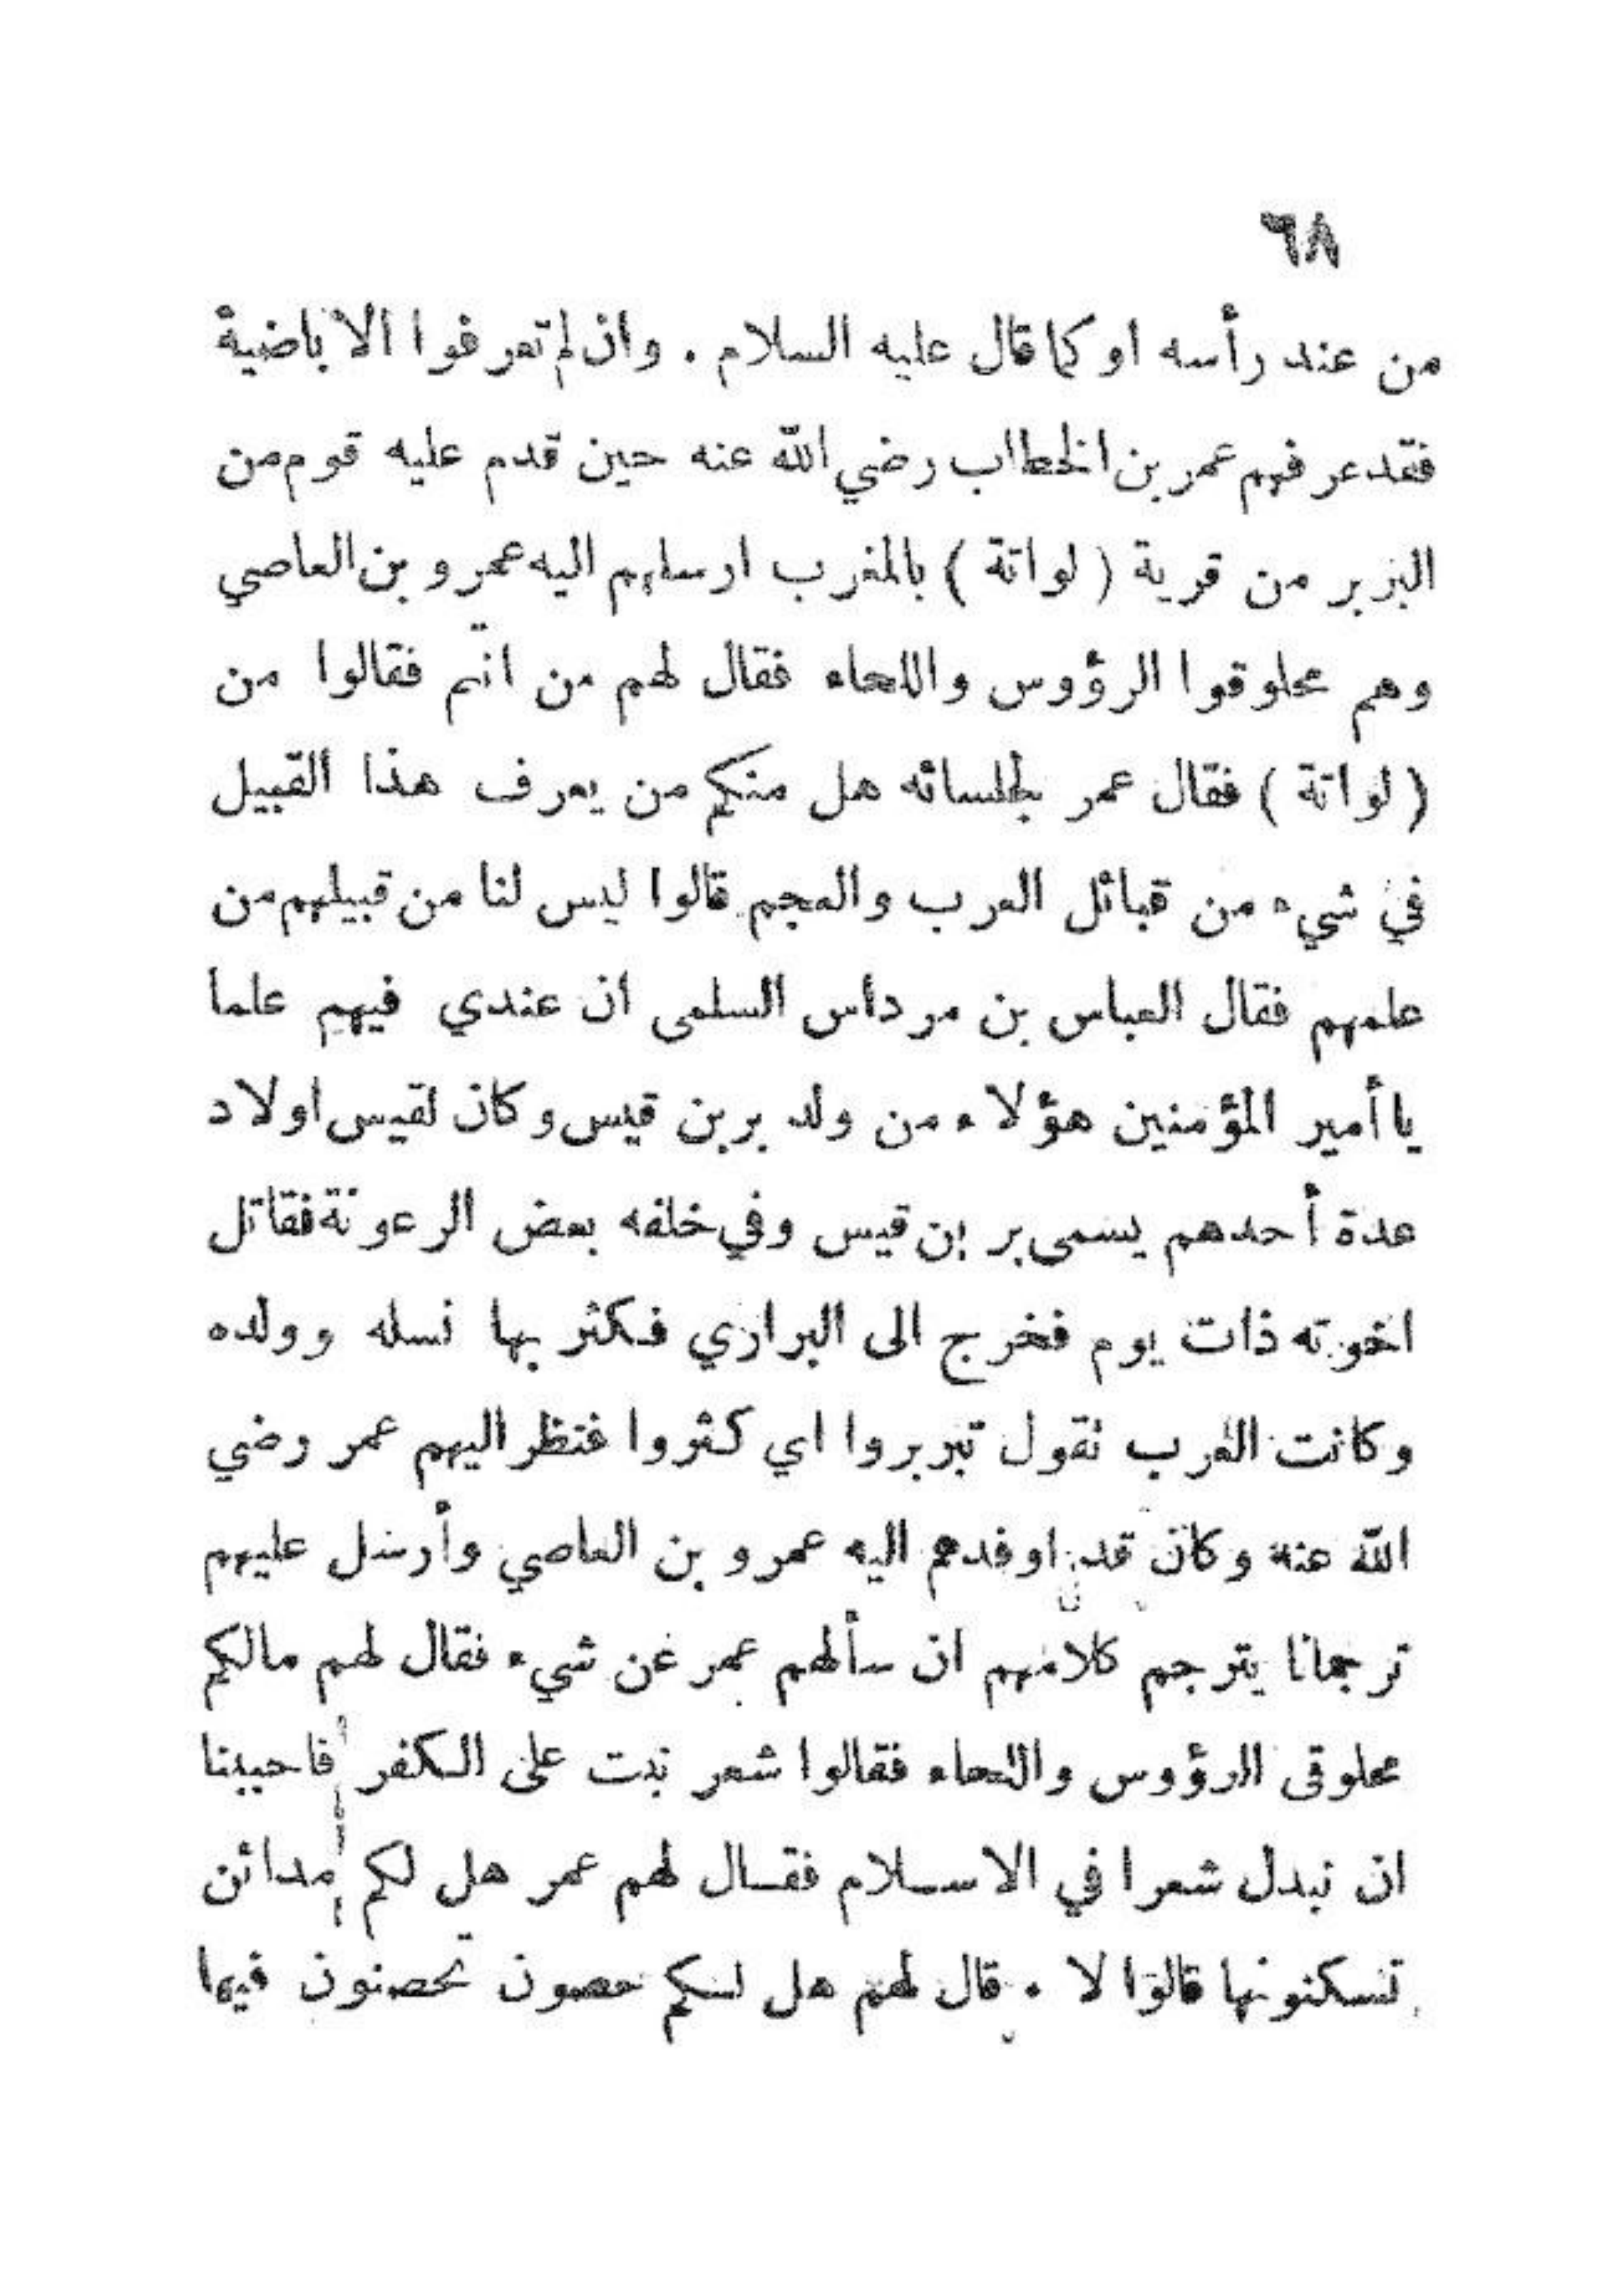 ٦٨
من عند رأسه او كما قال عليه السلام . وان لم تعرفوا الاباضية
فقد عرفهم عمر بن الخطاب رضي الله عنه حين قدم عليه قوم من
البربر من قرية ( لواتة ) بالمغرب ارسلهم اليه عمرو بن العاصي
وهم محلوقوا الرؤوس واللحاء فقال لهم من انتم فقالوا من
( لواتة ) فقال عمر لجلسائه هل منكم من يعرف هذا القبيل
في شيء من قبائل العرب والعجم قالوا ليس لنا من قبيلهم من
علمهم فقال العباس بن مرداس السلمى ان عندي فيهم علما
يا أمير المؤمنين هؤلاء من ولد بر بن قيس وكان لقيس اولاد
عدة أحدهم يسمى بر بن قيس وفي خلفه بعض الرعونة فقاتل
اخوته ذات يوم فخرج الى البراري فكثر بها نسله وولده
وكانت العرب تقول تبربروا اي كثروا فنظر اليهم عمر رضي
الله عنه وكان قد اوفدهم اليه عمرو بن العاصي وأرسل عليهم
ترجمانا يترجم كلامهم ان سألهم عمر عن شيء فقال لهم مالكم
محلوقى الرؤوس واللحاء فقالوا شعر نبت على الكفر فاحببنا
ان نبدل شعرا في الاسلام فقال لهم عمر هل لكم مدائن
تسكنونها قالوا لا . قال لهم هل لكم حصون تحصنون فيها